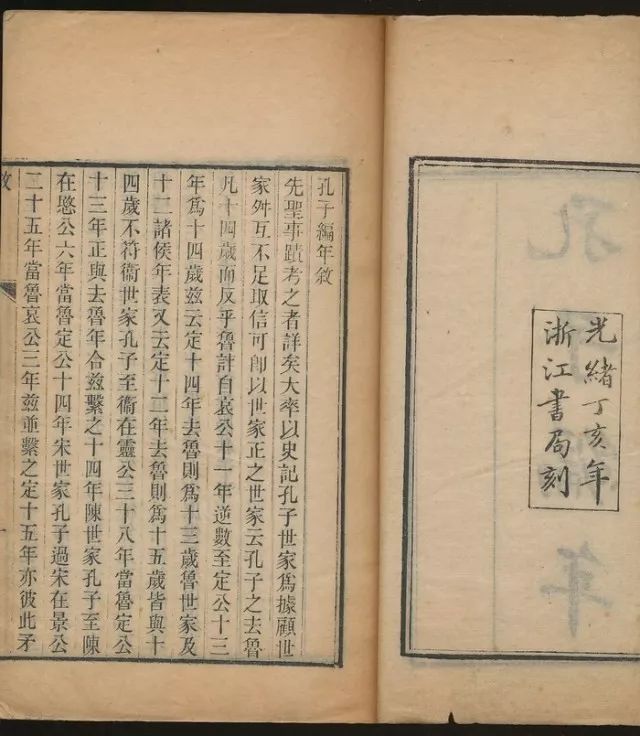 光緒丁亥年
浙江書局刻
孔子編年敘
先聖事蹟考之者詳矣大率以史記孔子世家為據顧世
家舛互不足取信可卽以世家正之世家云孔子之去魯
凡十四歲而反乎魯計自哀公十一年逆數至定公十三
年為十四歲茲云定十四年去魯則為十三歲魯世家及
十二諸侯年表又云定十二年去魯則為十五歲皆與十
四歲不符衞世家孔子至衞在靈公三十八年當魯定公
十三年正與去魯年合茲繫之十四年陳世家孔子至陳
在愍公六年當魯定公十四年宋世家孔子過宋在景公
二十五年當魯哀公三年茲並繫之定十五年亦彼此矛